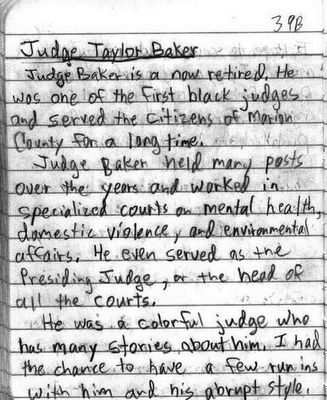 39B
Judge Taylor Baker
Judge Baker is a now retired. He
was one of the first black judges
and served the citizens of Marion
County for a long time.
Judge Baker held many posts
over the years and worked in
specialized courts on mental health,
domestic violence, and environmental
affairs. He even served as the
Presiding Judge, or the head of
all the courts.
He was a colorful judge who
has many stories about him. I had
the chance to have a few run ins
with him and his abrupt style.